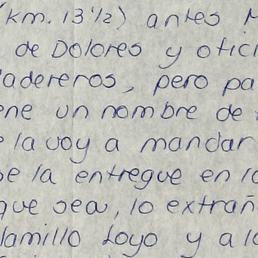 (km. 13 1/2) antes
de Dolores y ofici
adereros, pero pa
ene un nombre de
la voy a mandar
se la entregue en lo
que sea, lo extrañ
lamillo Loyo y a lo